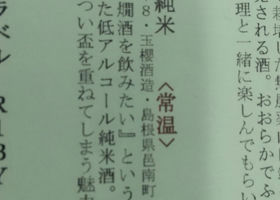 される酒。おおらかでふ
理と一緒に楽しんでもらい
〈常温〉
純米
8・玉櫻酒造・島根県邑南町
燗酒を飲みたい』という
た低アルコール純米酒。
つい盃を重ねてしまう魅力
ラベル R1BY